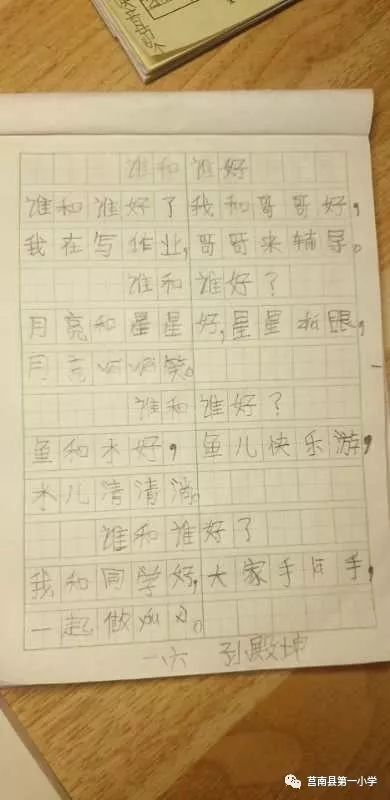 谁和谁好
谁和谁好了我和哥哥好,
我在写作业,哥哥来辅导。
谁和谁好?
月亮和星星好,星星 眼,
月 笑。
谁和谁好?
鱼和水好,鱼儿快乐游,
水儿清清淌。
谁和谁好了
我和同学好,大家手 手,
一起做
一六 孙殿坤
莒南县第一小学